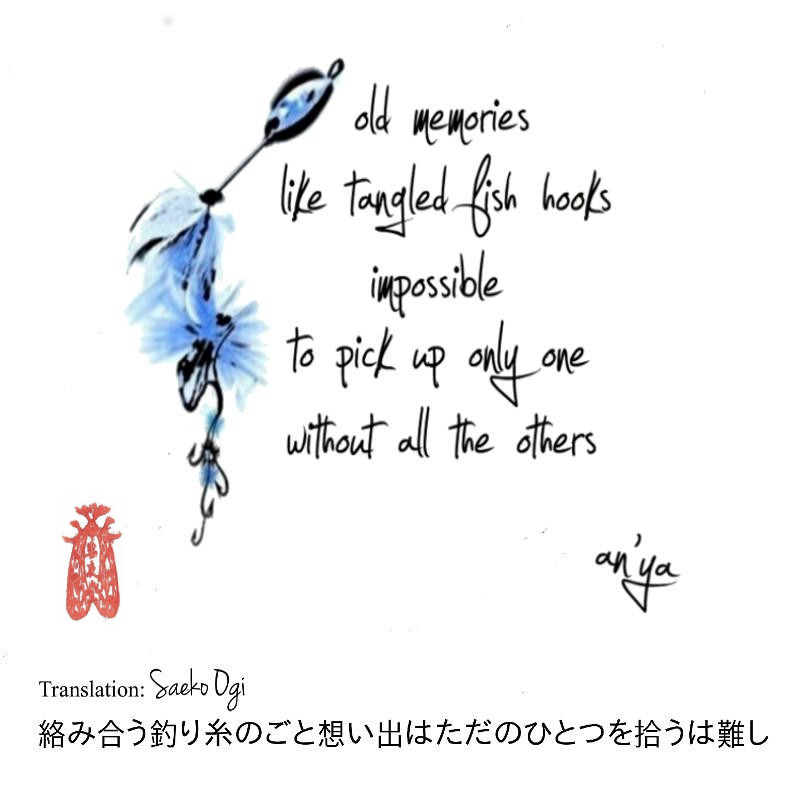 old memories
like tangled fish hooks
impossible
to pick up only one
without all the others
an'ya
Translation: Saeko Ogi
絡み合う釣り糸のごと想い出はただのひとつを拾うは難し